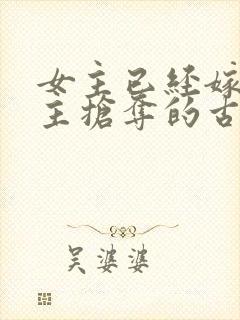 女主已經嫁
主搶奪的古
吳婆婆